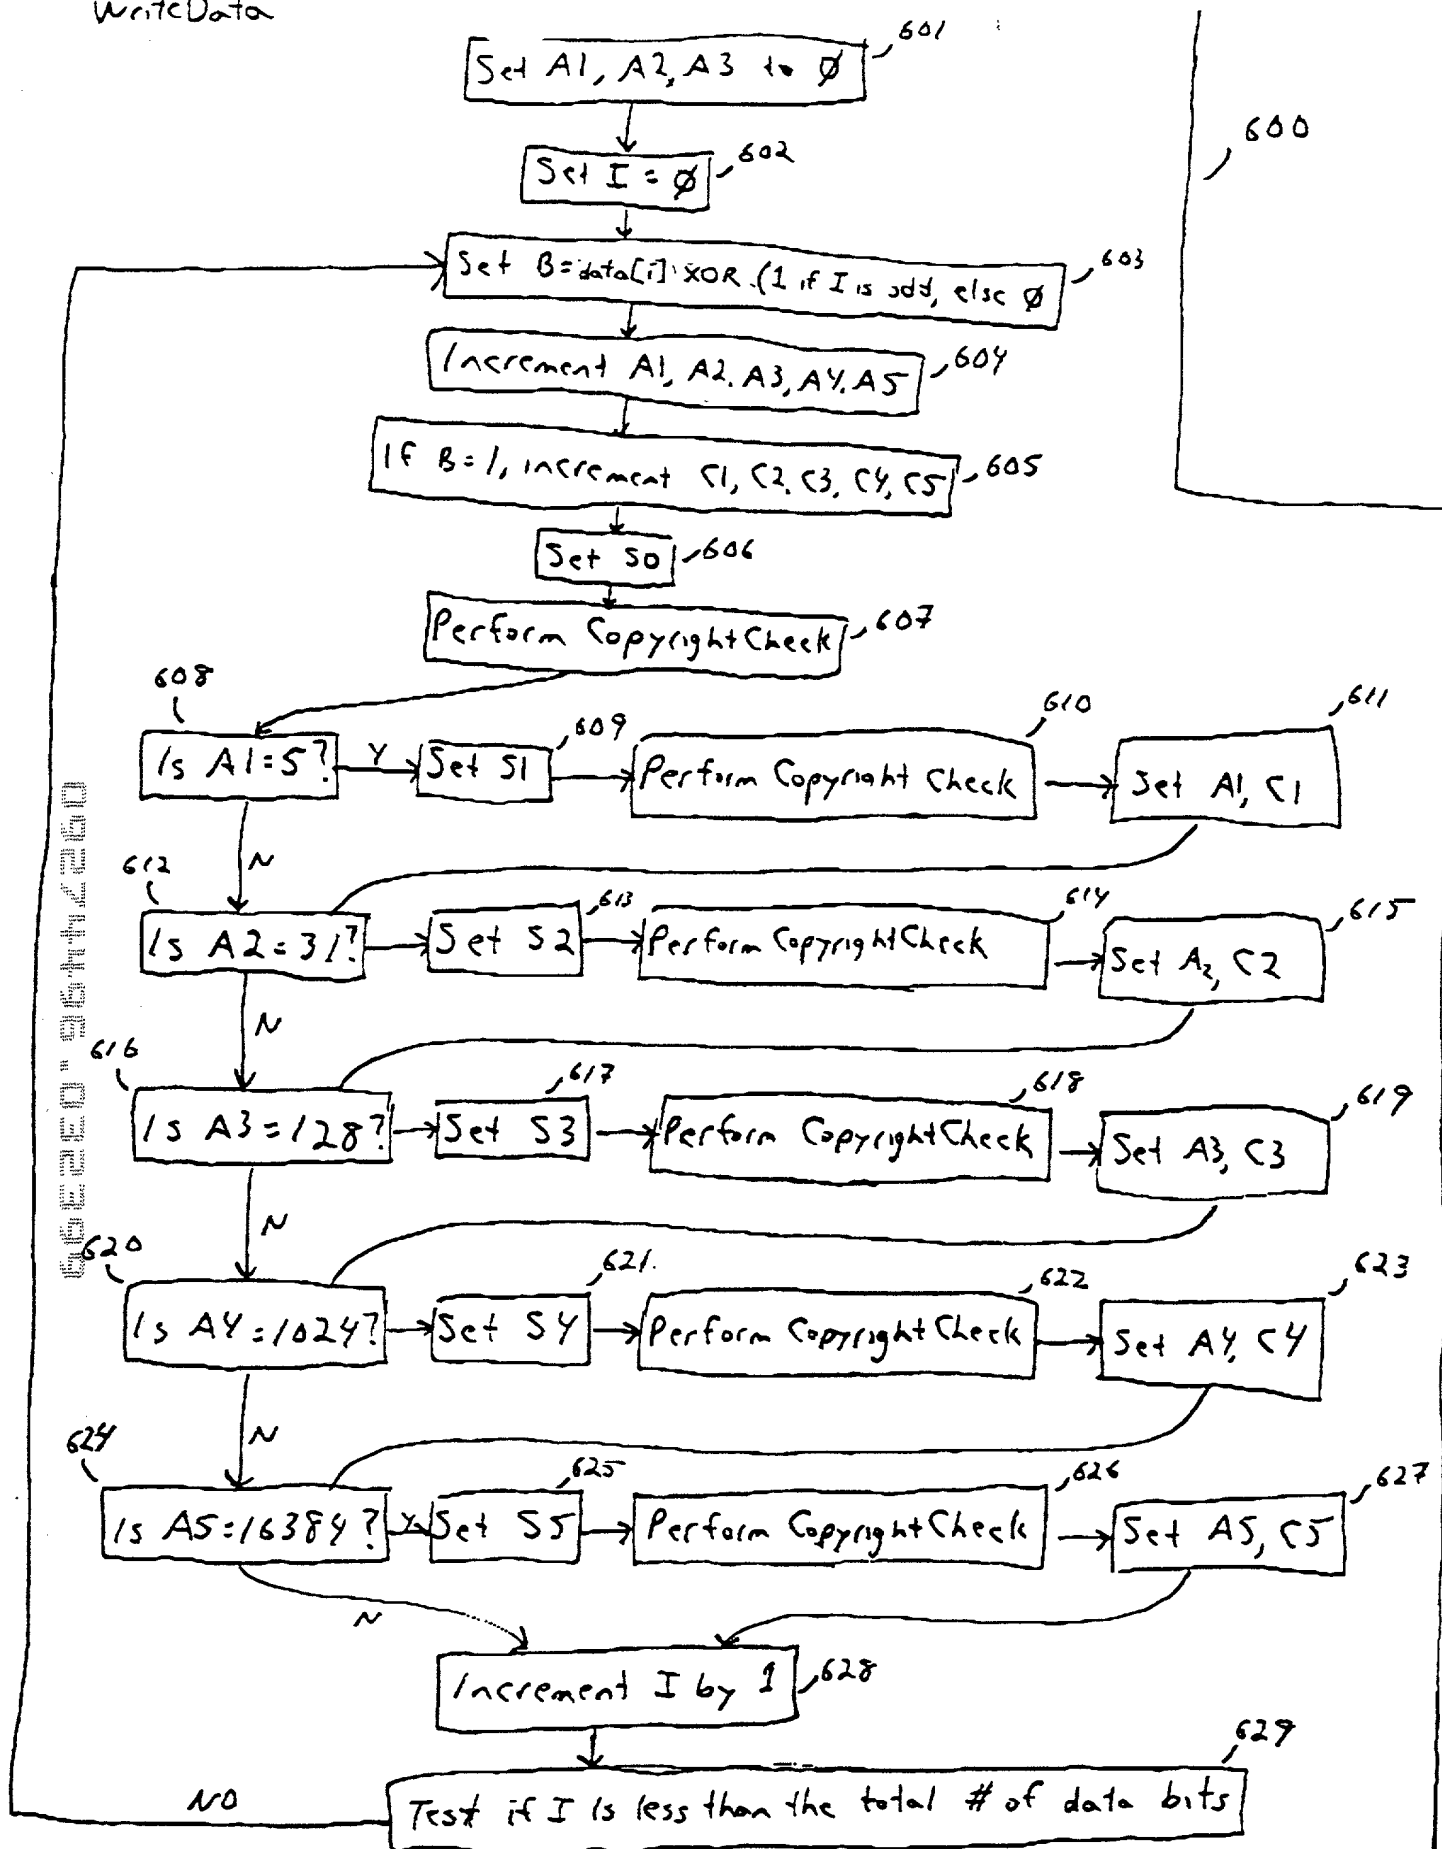 WriteData
601
Set A1, A2, A3 to Ø
600
602
Set I = Ø
603
Set B=data[i] XOR (1 if I is odd, else Ø
604
Increment A1, A2, A3, A4, A5
605
If B=1, increment C1, C2, C3, C4, C5
606
Set S0
607
Perform CopyrightCheck
608
Is A1=5?
Y
609
Set S1
610
Perform Copyright Check
611
Set A1, C1
N
612
Is A2=31?
613
Set S2
614
Perform CopyrightCheck
615
Set A2, C2
N
616
Is A3=128?
617
Set S3
618
Perform CopyrightCheck
619
Set A3, C3
N
620
Is A4=1024?
621.
Set S4
622
Perform CopyrightCheck
623
Set A4, C4
N
624
Is A5=16384?
Y
625
Set S5
626
Perform CopyrightCheck
627
Set A5, C5
N
628
Increment I by 1
629
NO
Test if I is less than the total # of data bits